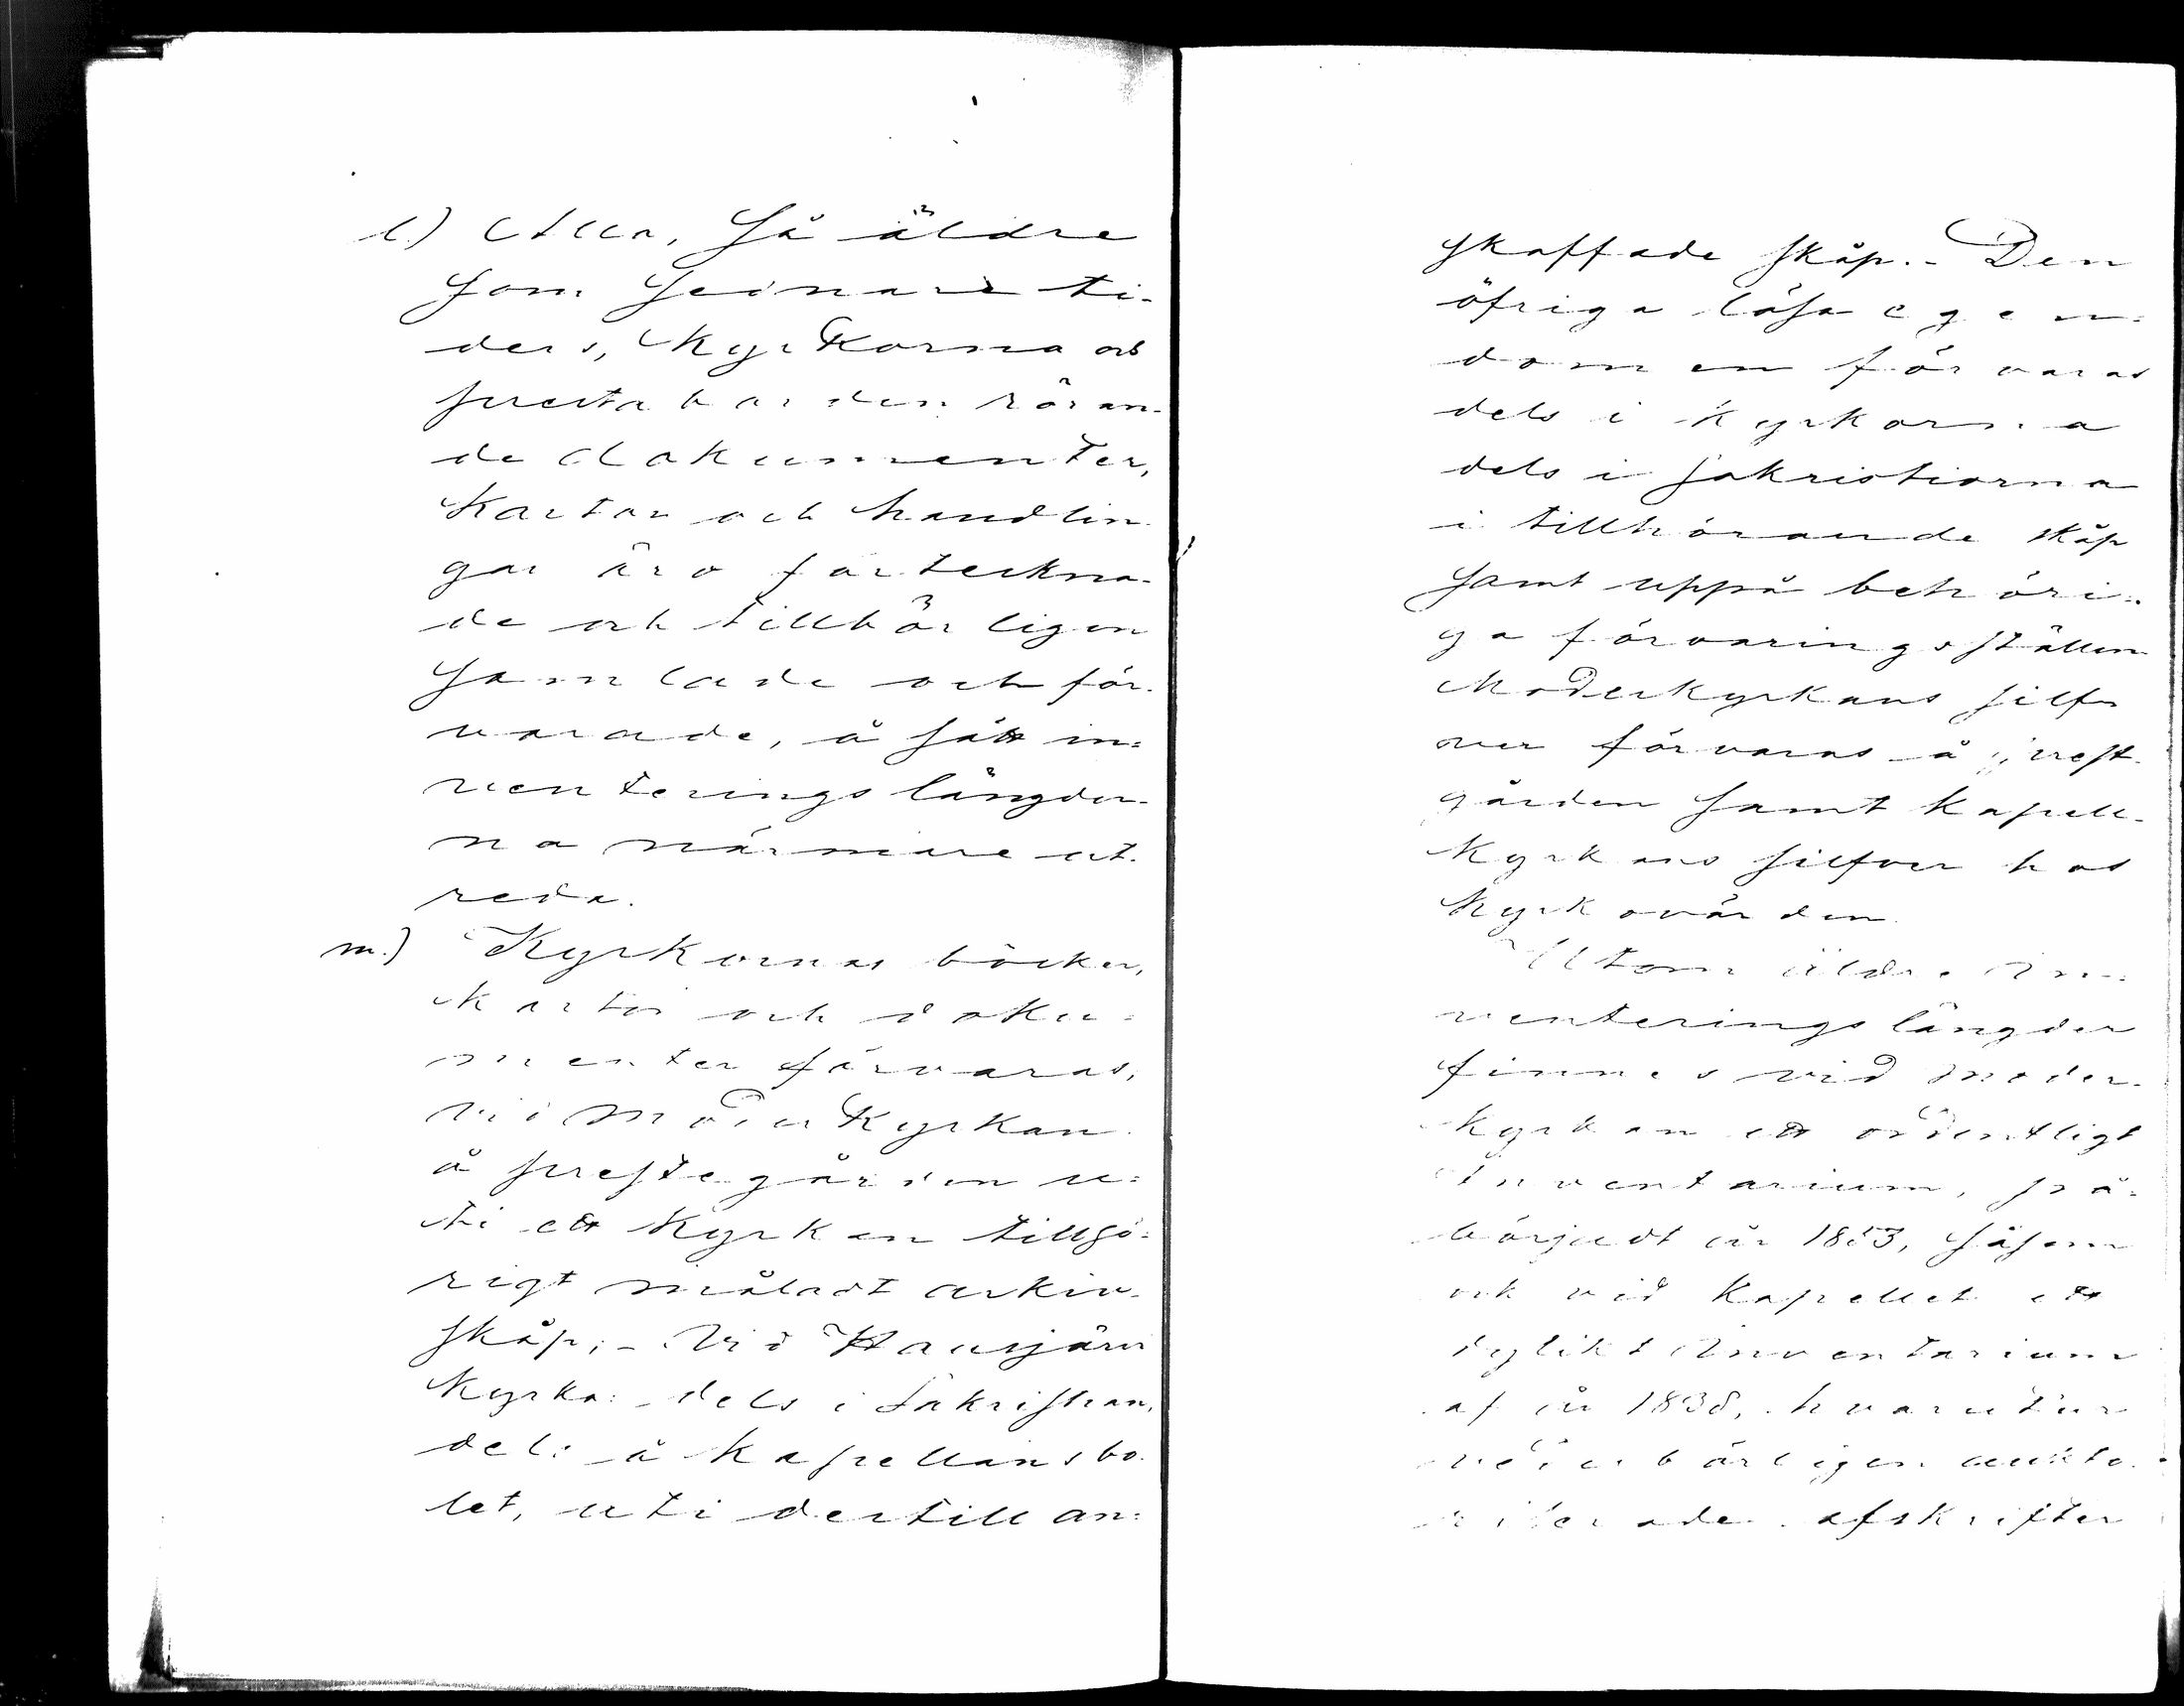 l.) Alla, så äldre
som sednare ti-
ders, Kyrkorna och
prestaborden röran-
de dokumenter,
Kartor och handlin
gar äro förteckna-
de och tillbörligen
samlade och för-
varade, å sätt in=
venterings längder-
na närmare ut-
reda.
m.) Kyrkornas böcker,
kartor och doku=
menter förvaras,
vid Moderkyrkan
å prestegården u=
ti ett Kyrkan tillhö=
rigt måladt arkiv-
skåp; - Vid Hausjärvi
Kyrka: dels i Sakristian,
dels å Kapellansbo-
let, uti dertill an=
skaffade skåp. - Den
öfriga lösa egen=
domen förvaras
dels i kyrkorna
dels i sakristiorna
i tillhörande skåp
samt uppå behöri=
ga förvaringsställen
Moderkyrkans silf
ver förvaras å prest-
gården samt Kapell-
Kyrkans silfver hos
Kyrkovärden.
Utom äldre In=
venterings längder
finnes vid Moder-
kyrkan ett ordentligt
Inventarium, på=
börjadt år 1853, såsom
ock vid Kapellet ett
dylikt Inventarium
af år 1838, hvarutur
vederbörligen aukto-
riserade afskrifter